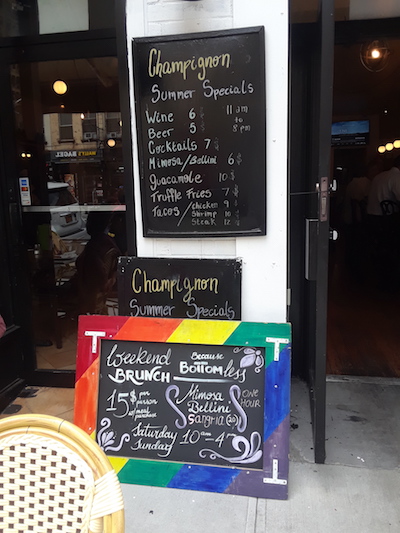 Champignon
Summer Specials
Wine 6 $ 11 am
Beer 5 $ to
Cocktails 7 $ 8 pm
Mimosa/Bellini 6 $
Guacamole 10 $
Truffle Fries 7 $
Tacos / chicken 9 $
Shrimp 10 $
Steak 12 $
Champignon
Summer Specials
Weekend Because
BRUNCH BOTTOMless
15$ per person w/ meal purchase
Mimosa
Bellini
Sangria (20)
ONE HOUR
Saturday 10am - 4
Sunday
BAGEL